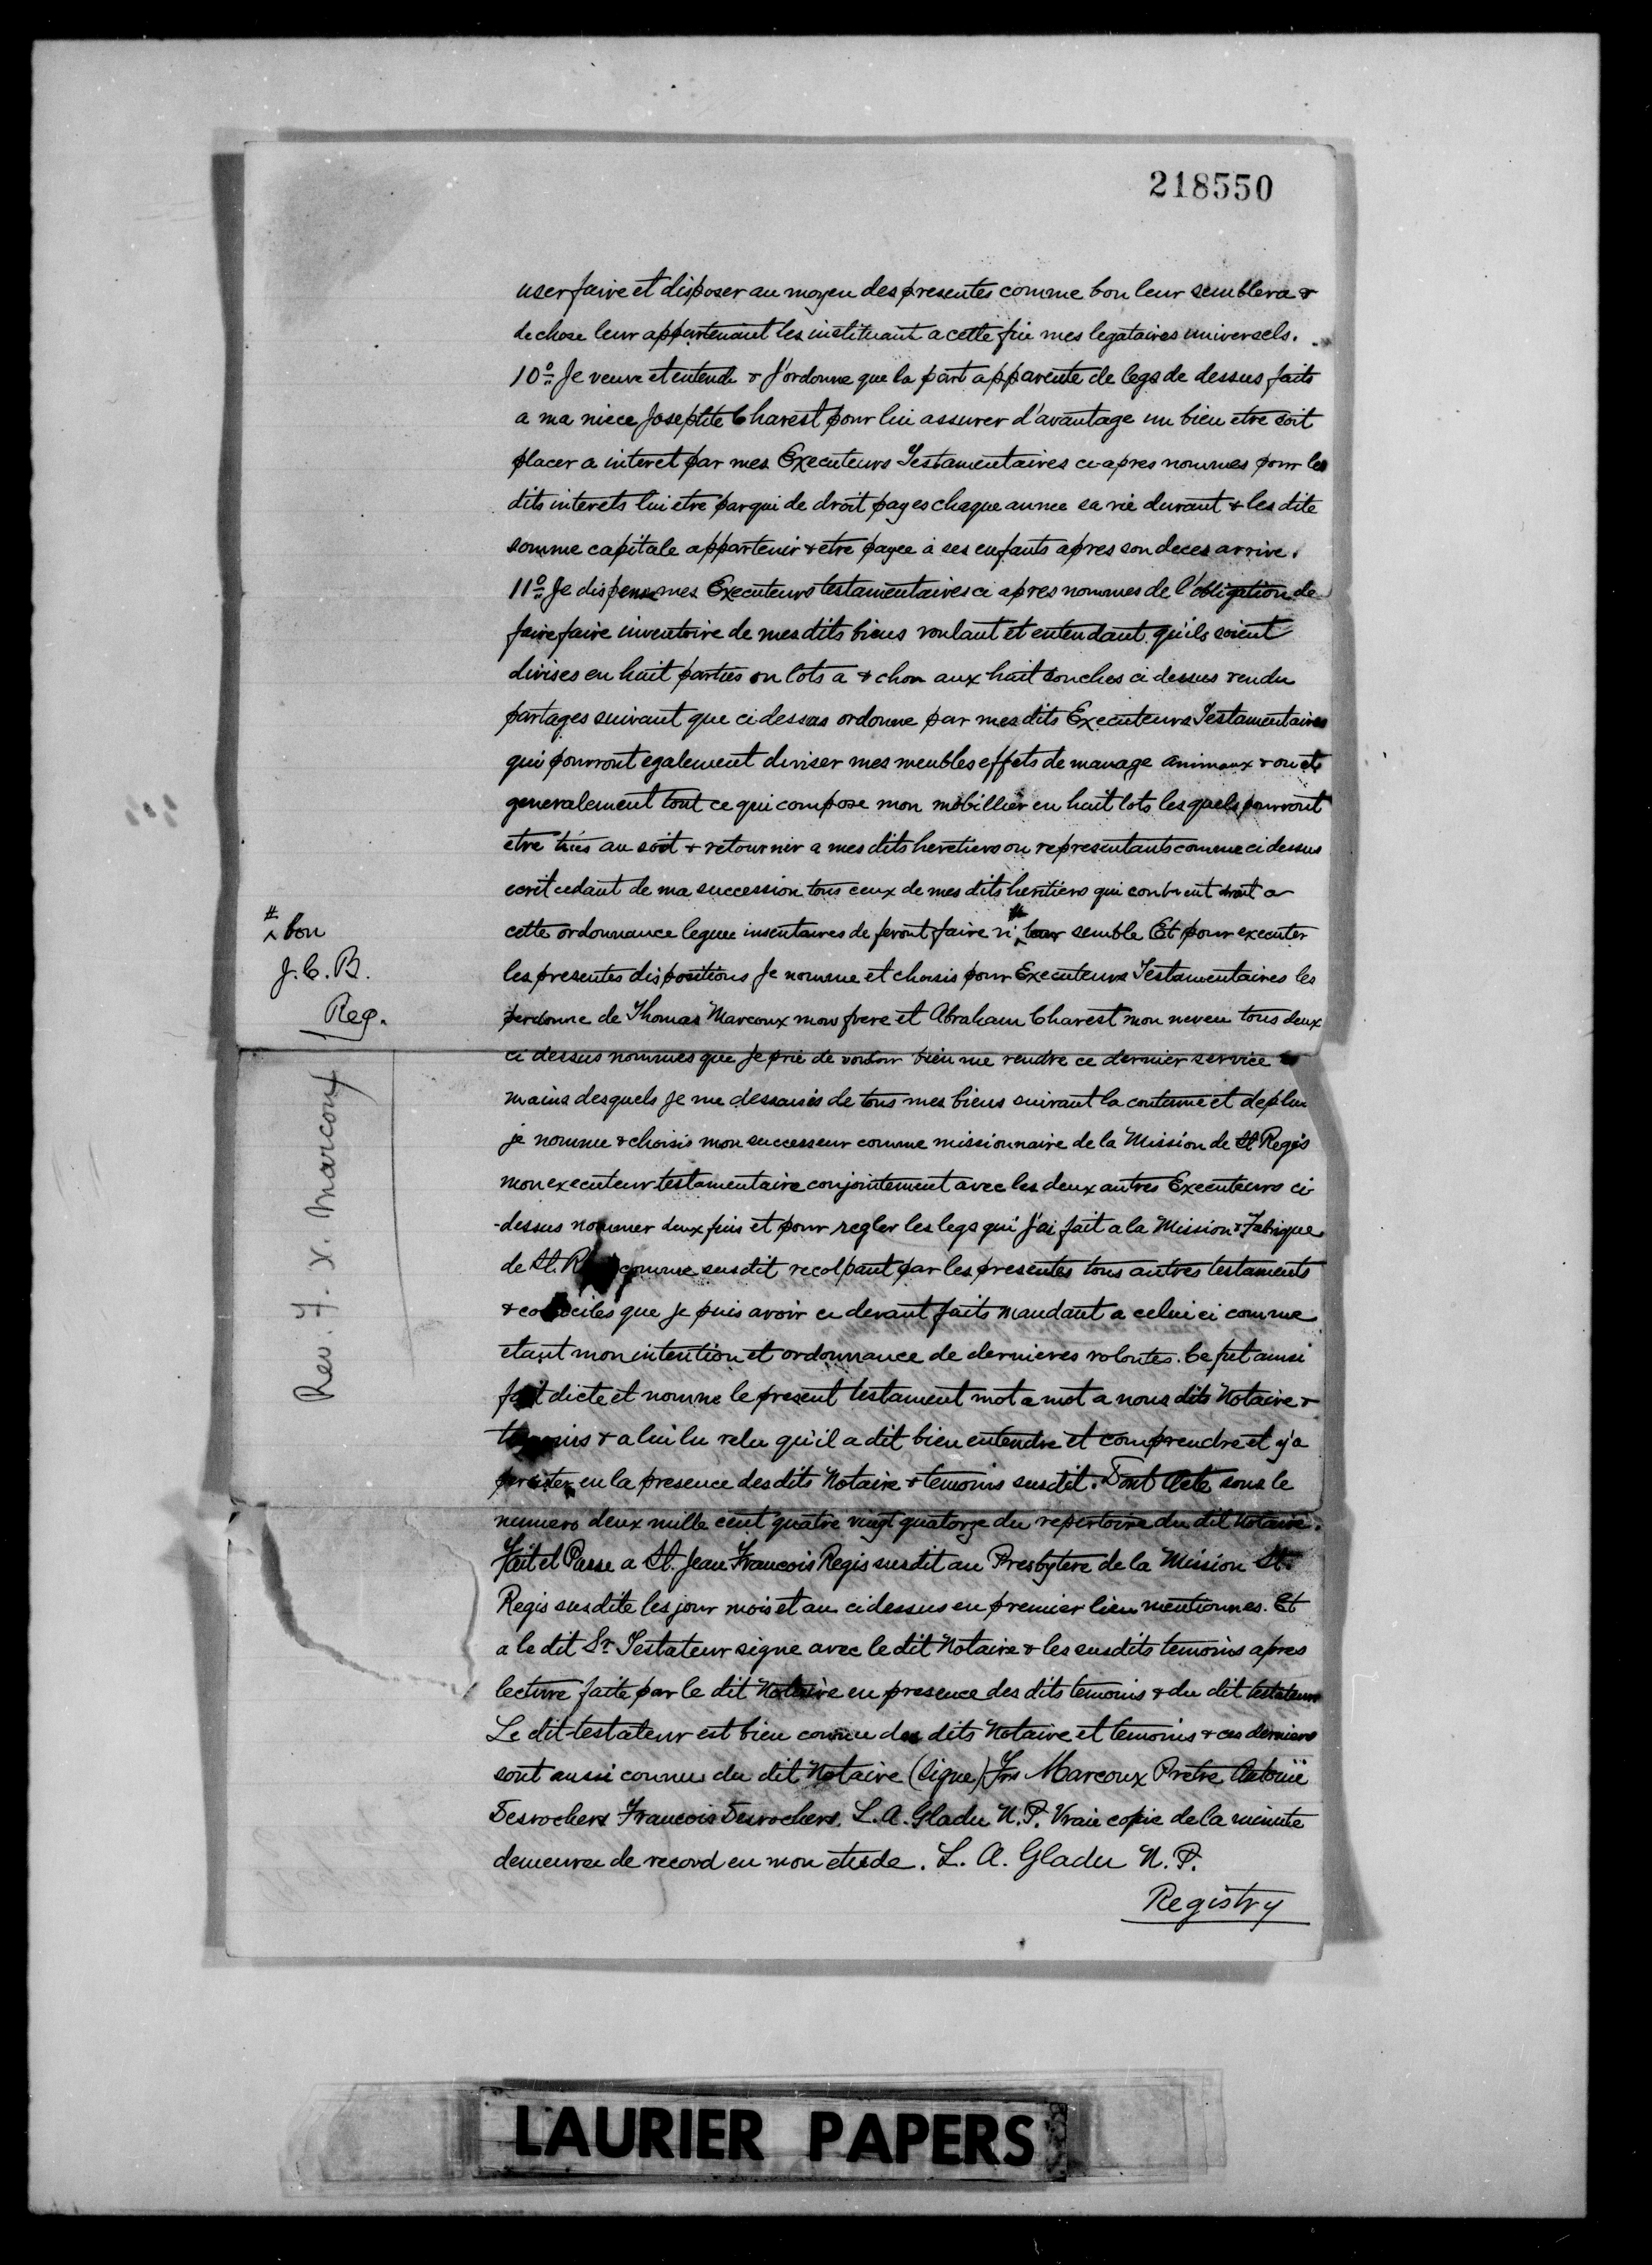 218550
user faire et disposer au moyen des presentes comme bon leur semblera &
de chose leur appartenant les instituant a cette fin mes legataires universels.
10° Je veuve et entends & J'ordonne que la part apparente de legs de dessus faits
a ma niece Josephte Charest pour lui assurer d'avantage un bien etre soit
placer a interet par mes Executeurs Testamentaires ci-apres nommes pour les
dits interets lui etre par qui de droit payes chaque annee sa vie durant & les dite
somme capitale appartenir & etre payee à ses enfants apres son deces arrive.
11° Je dispense mes Executeurs testamentaires ci apres nommes de l'obligation de
faire faire inventoire de mes dits biens voulant et entendant qu'ils soient
divises en huit parties ou lots a & chon aux huit souches ci dessus rendu
partages suivant que ci dessus ordonne par mes dits Executeurs Testamentaires
qui pourront egalement diviser mes meubles effets de manage animaux &
generalement tout ce qui compose mon mobillier en huit lots lesquels pourront
etre tirés au soit & retournir a mes dits heretiers ou representants comme ci dessus
ecrit cedant de ma succession tous ceux de mes dits heritiers qui droit a
cette ordonnance leguee insentaires de feront faire si # leur semble Et pour executer
# bon
J.C.B.
Reg.
les presentes dispositions Je nomme et choisis pour Executeurs Testamentaires les
perdonne de Thomas Marcoux mon frere et Abraham Charest mon neveu tous deux
ci dessus nommes que Je prie de vouloir bien me rendre ce dernier service
mains desquels Je me dessaisis de tous mes biens suivant la coutume et deplus
je nomme & choisis mon successeur comme missionnaire de la Mission de St Regis
mon executeur testamentaire conjointement avec les deux autres Executeurs ci-
-dessus nommer deux fins et pour regler les legs qui J'ai fait a la Mission & Fabrique
de St. R comme susdit par les presentes tous autres testaments
& que je puis avoir ci devant faits mandant a celui ci comme
etant mon intention et ordonnance de dernieres volontes. Ce fut ainsi
dicte et nomme le present testament mot a mot a nous dits Notaire &
& a lui lu relu qu'il a dit bien entendre et comprendre et y'a
en la presence des dits Notaire & temoins susdit. Dont Acte sous le
numero deux mille cent quatre vingt quatorze du repertoire du dit Notaire.
Fait et Passe a St. Jean Francois Regis susdit au Presbytere de la Mission St.
Regis susdite les jour mois et an ci dessus en premier lieu mentionnes. Et
a le dit Sr Testateur signe avec le dit Notaire & les susdits temoins apres
lecture faite par le dit Notaire en presence des dits temoins & du dit testateur
Le dit testateur est bien connu des dits Notaire et temoins & ces derniers
sont aussi connus du dit Notaire (Signe) Frs Marcoux Pretre Antoine
Desrochers Francois Desrochers. L. A. Gladu N. P. Vraie copie de la minute
demeuree de record en mon etude. L. A. Gladu N. P.
Registry
Rev. F. X. Marcoux
LAURIER PAPERS